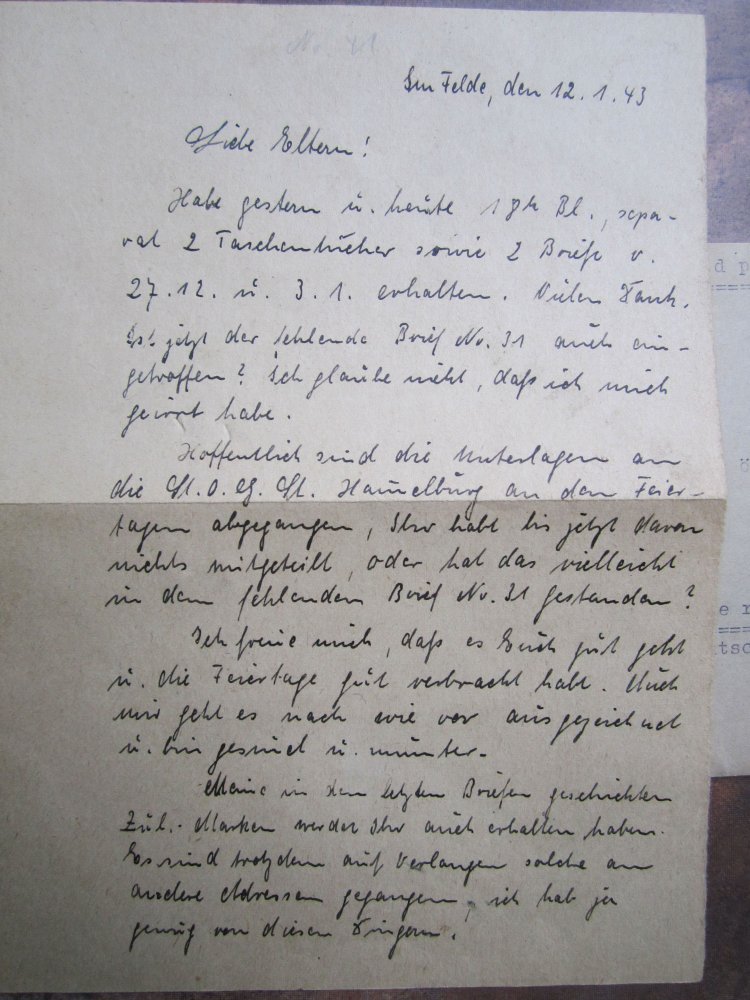 No. 41
Im Felde, den 12.1.43
Liebe Eltern!
Habe gestern u. heute Bl., sepa-
rat 2 Taschentücher sowie 2 Briefe v.
27.12. u. 3.1. erhalten. Vielen Dank.
Ist jetzt der fehlende Brief No. 31 auch ein-
getroffen? Ich glaube nicht, daß ich mich
geirrt habe.
Hoffentlich sind die Unterlagen an
die Hammelburg an den Feier-
tagen abgegangen, Ihr habt bis jetzt davon
nichts mitgeteilt, oder hat das vielleicht
in dem fehlenden Brief No. 31 gestanden?
Ich freue mich, daß es Euch gut geht
u. die Feiertage gut verbracht habt. Auch
mir geht es nach wie vor ausgezeichnet
u. bin gesund u. munter.
Meine in den letzten Briefen geschickten
Zul.-Marken werdet Ihr auch erhalten haben.
Es sind trotzdem auf Verlangen solche an
andere Adressen gegangen, ich hab ja
genug von diesen Dingern.
d p
====
e r
===
tsc